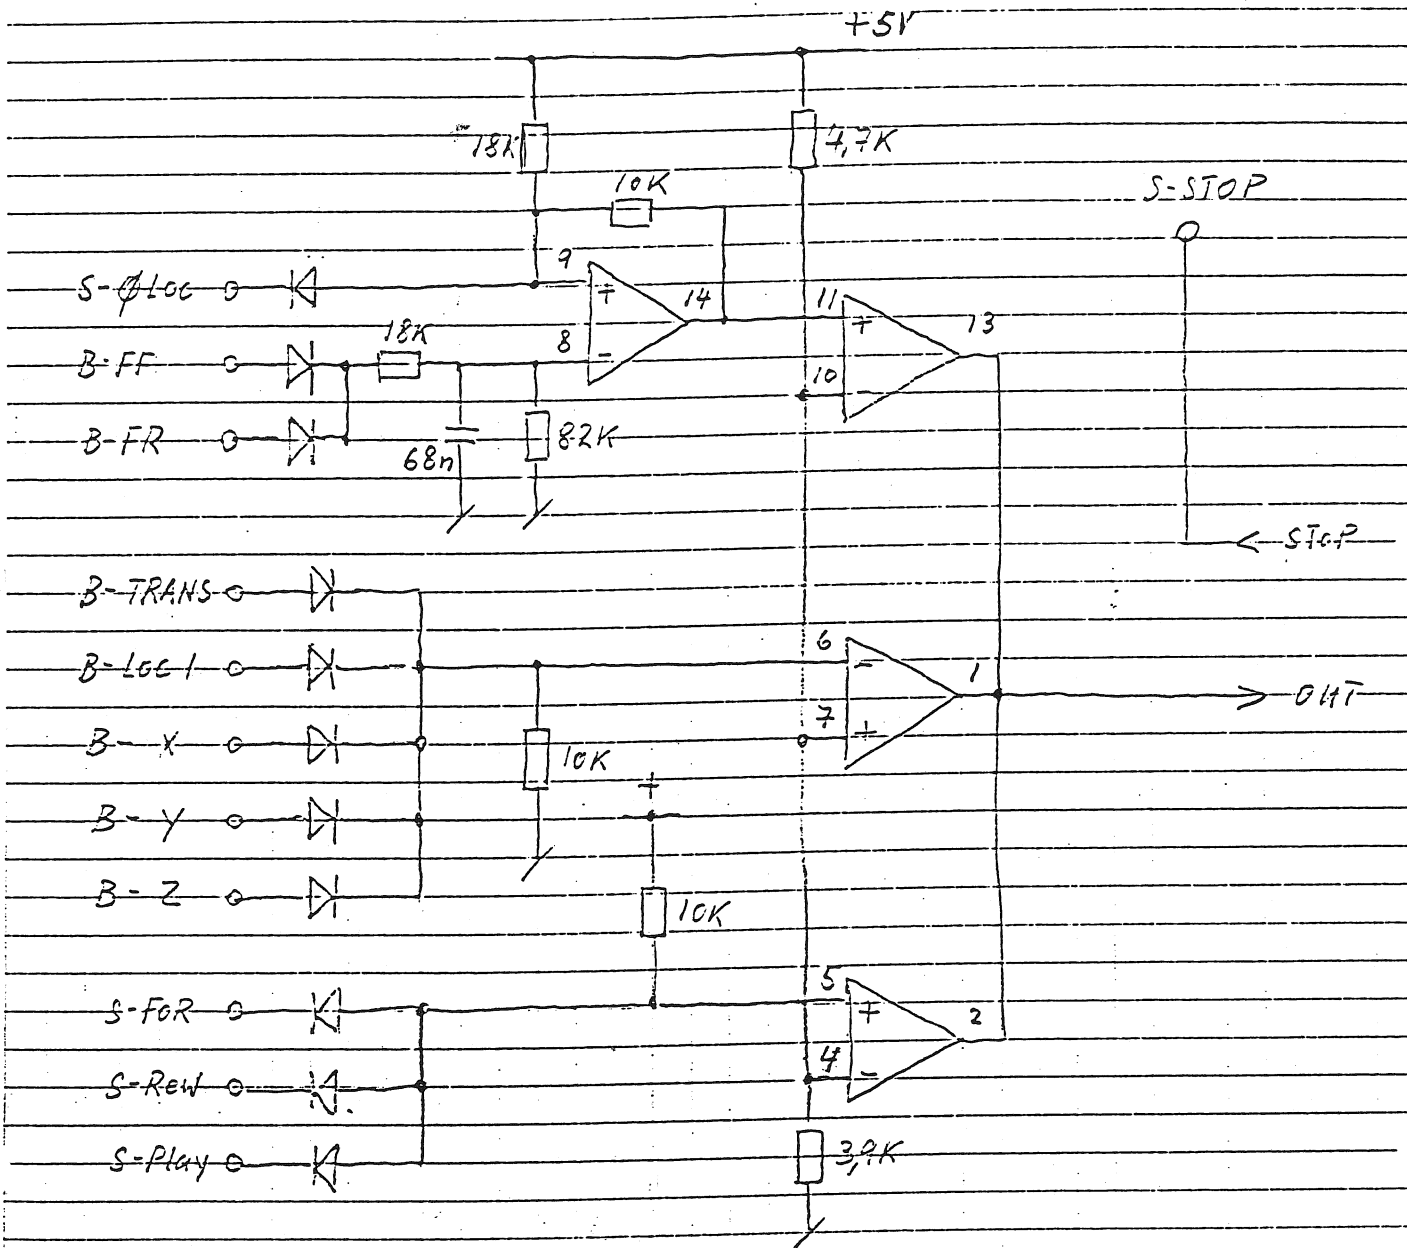 +5V
18K
4,7K
10K
S-STOP
S-ØLOC
9
+
14
11
+
13
18K
B-FF
8
-
10
-
B-FR
68n
82K
STOP
B-TRANS
B-LOC 1
6
-
1
OUT
7
+
B-X
10K
+
B-Y
B-Z
10K
S-FOR
5
+
2
S-Rew
4
-
S-Play
3,9K